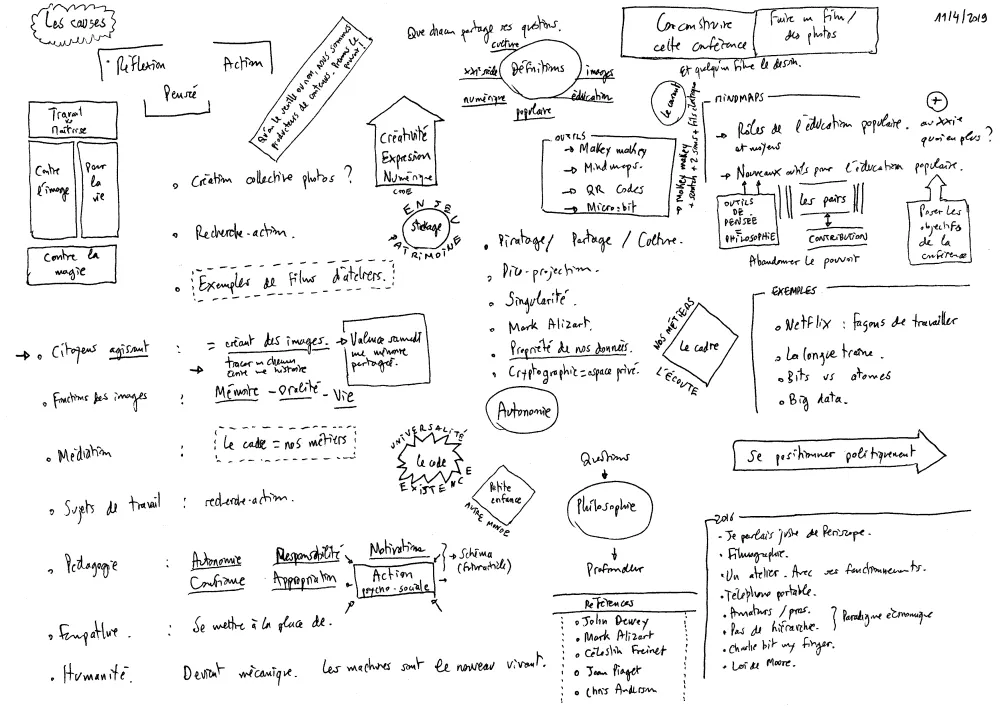 Les causes
Réflexion Action
Pensée
Travail
Maîtrise
Contre l'image
Pour la vie
Contre la magie
Qu'on le veuille ou non, nous sommes
producteurs de contenus. Prenons le
pouvoir !
Que chacun partage ses questions.
Définitions
culture
XXIe siècle
images
numérique
éducation
populaire
Co-construire
cette conférence
Faire un film /
des photos
Et quelqu'un filme le dessin.
11/4/2019
Créativité
Expression
Numérique
code
OUTILS
→ Makey makey
→ Mindmaps.
→ QR Codes
→ Micro:bit
Le courant
→ Makey makey
+ scratch + 2 sons + fils électrique
MINDMAPS
→ Rôles de l'éducation populaire.
et moyens
→ Nouveaux outils pour l'éducation populaire.
+
au XXIe
quoi en plus ?
OUTILS
DE
PENSÉE
PHILOSOPHIE
les pairs
CONTRIBUTION
Abandonner le pouvoir
Poser les
objectifs
de la
conférence
• Création collective photos ?
• Recherche-action.
• Exemples de films d'ateliers.
ENJEU
Stockage
PATRIMOINE
• Piratage / Partage / Culture.
• Pico-projection.
• Singularité.
• Mark Alizart.
• Propriété de nos données.
• Cryptographie = espace privé.
NOS MÉTIERS
Le cadre
L'ÉCOUTE
EXEMPLES
• Netflix : façons de travailler
• La longue traîne.
• Bits vs atomes
• Big data.
→ • Citoyens agissant : = créant des images.
→ tracer un chemin
écrire une histoire
→ Valeur samedi
une mémoire
partagée.
• Fonctions des images : Mémoire - Oralité - Vie
• Médiation : Le cadre = nos métiers
Autonomie
UNIVERSALITÉ
Le code
EXISTENCE
Petite
enfance
AUTRE MONDE
Questions
Philosophie
Profondeur
Se positionner politiquement
• Sujets de travail : recherche-action.
• Pédagogie : Autonomie Responsabilité Motivation
Confiance Appropriation
Action
psycho-sociale
→ Schéma
• Empathie : Se mettre à la place de.
• Humanité. Devient mécanique. Les machines sont le nouveau vivant.
RÉFÉRENCES
• John Dewey
• Mark Alizart
• Célestin Freinet
• Jean Piaget
• Chris Anderson
2016
- Je parlais juste de Periscope.
• Filmographie.
• Un atelier. Avec ses fonctionnements.
• Téléphone portable.
• Amateurs / pros.
• Pas de hiérarchie.
} Paradigme économique
• Charlie bit my finger.
• Loi de Moore.